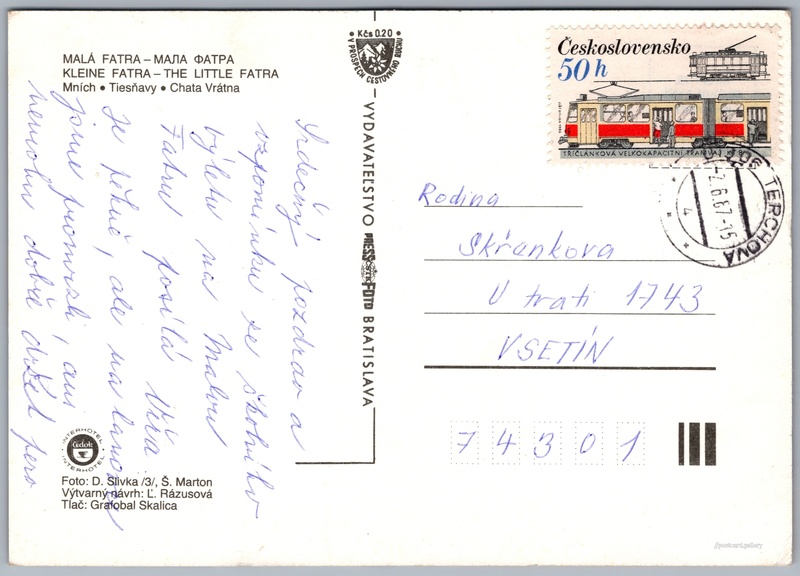 MALÁ FATRA – МАЛА ФАТРА
KLEINE FATRA – THE LITTLE FATRA
Mních • Tiesňavy • Chata Vrátna
Kčs 0.20
V PROSPECH CESTOVNÉHO RUCHU
VYDAVATEĽSTVO PRESSFOTO BRATISLAVA
Československo
50 h
TŘÍČLÁNKOVÁ VELKOKAPACITNÍ TRAMVAJ
013 06 TERCHOVÁ
-2.6.87-15
4
Srdečný pozdrav a
vzpomínku ze školního
výletu na Malou
Fatru posílá Věra
Je pěkně, ale na lanovce
jsme promrzli, ani
nemohu dobře držet pero
Rodina
Skřankova
U trati 1743
VSETÍN
74301
INTERHOTEL
Čedok
INTERHOTEL
Foto: D. Slivka /3/, Š. Marton
Výtvarný návrh: Ľ. Rázusová
Tlač: Grafobal Skalica
//postcard.gallery